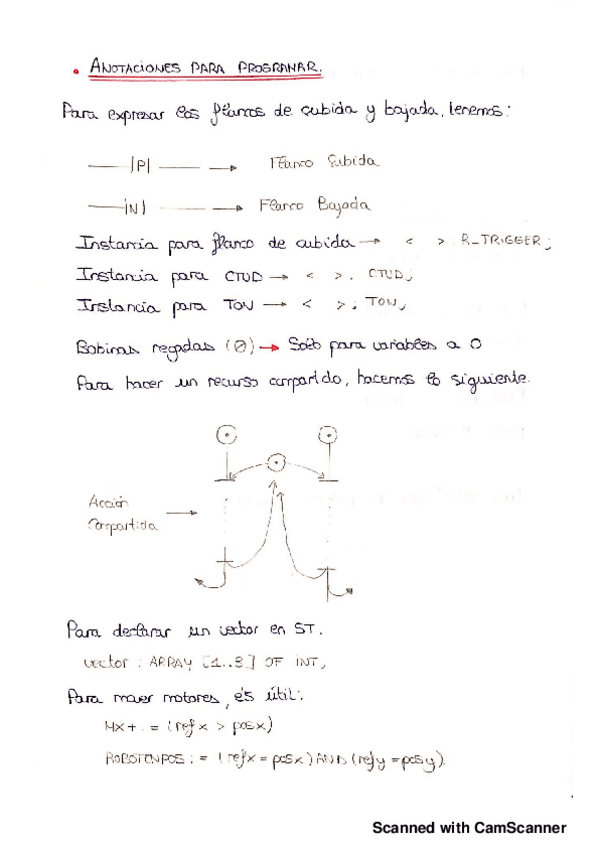 • ANOTACIONES PARA PROGRAMAR.
Para expresar los flancos de subida y bajada, tenemos:
|P| → Flanco Subida
|N| → Flanco Bajada
Instancia para flanco de subida → < > : R_TRIGGER;
Instancia para CTUD → < > : CTUD;
Instancia para TON → < > : TON;
Bobinas negadas (Ø) → Solo para variables a 0
Para hacer un recurso compartido, hacemos lo siguiente.
Acción
Compartida →
Para declarar un vector en ST.
vector : ARRAY [1..3] OF INT;
Para mover motores, es útil:
MX+ := (refx > posx)
ROBOTENPOS := (refx = posx) AND (refy = posy).
Scanned with CamScanner